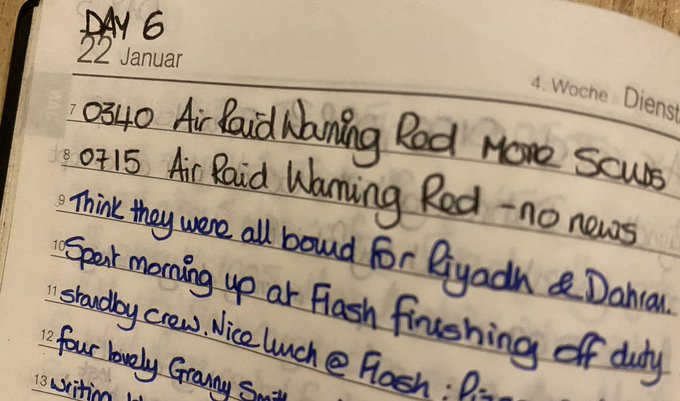 DAY 6
22 Januar
4. Woche Dienst
7 0340 Air Raid Warning Red More SCUDS
8 0715 Air Raid Warning Red - no news
9 Think they were all bound for Riyadh & Dahran.
10 Spent morning up at Flash finishing off duty
11 standby crew. Nice lunch @ Flash:
12 four lovely Granny Smith
13 writing